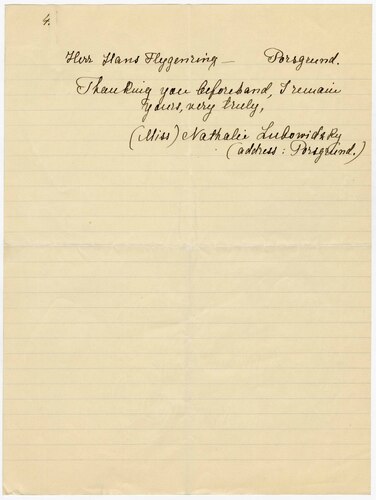 4.
Herr Hans Flygenring — Porsgrund.
Thanking you beforehand, I remain
Yours, very truly,
(Miss) Nathalie Lubowidzky
(address: Porsgrund.)